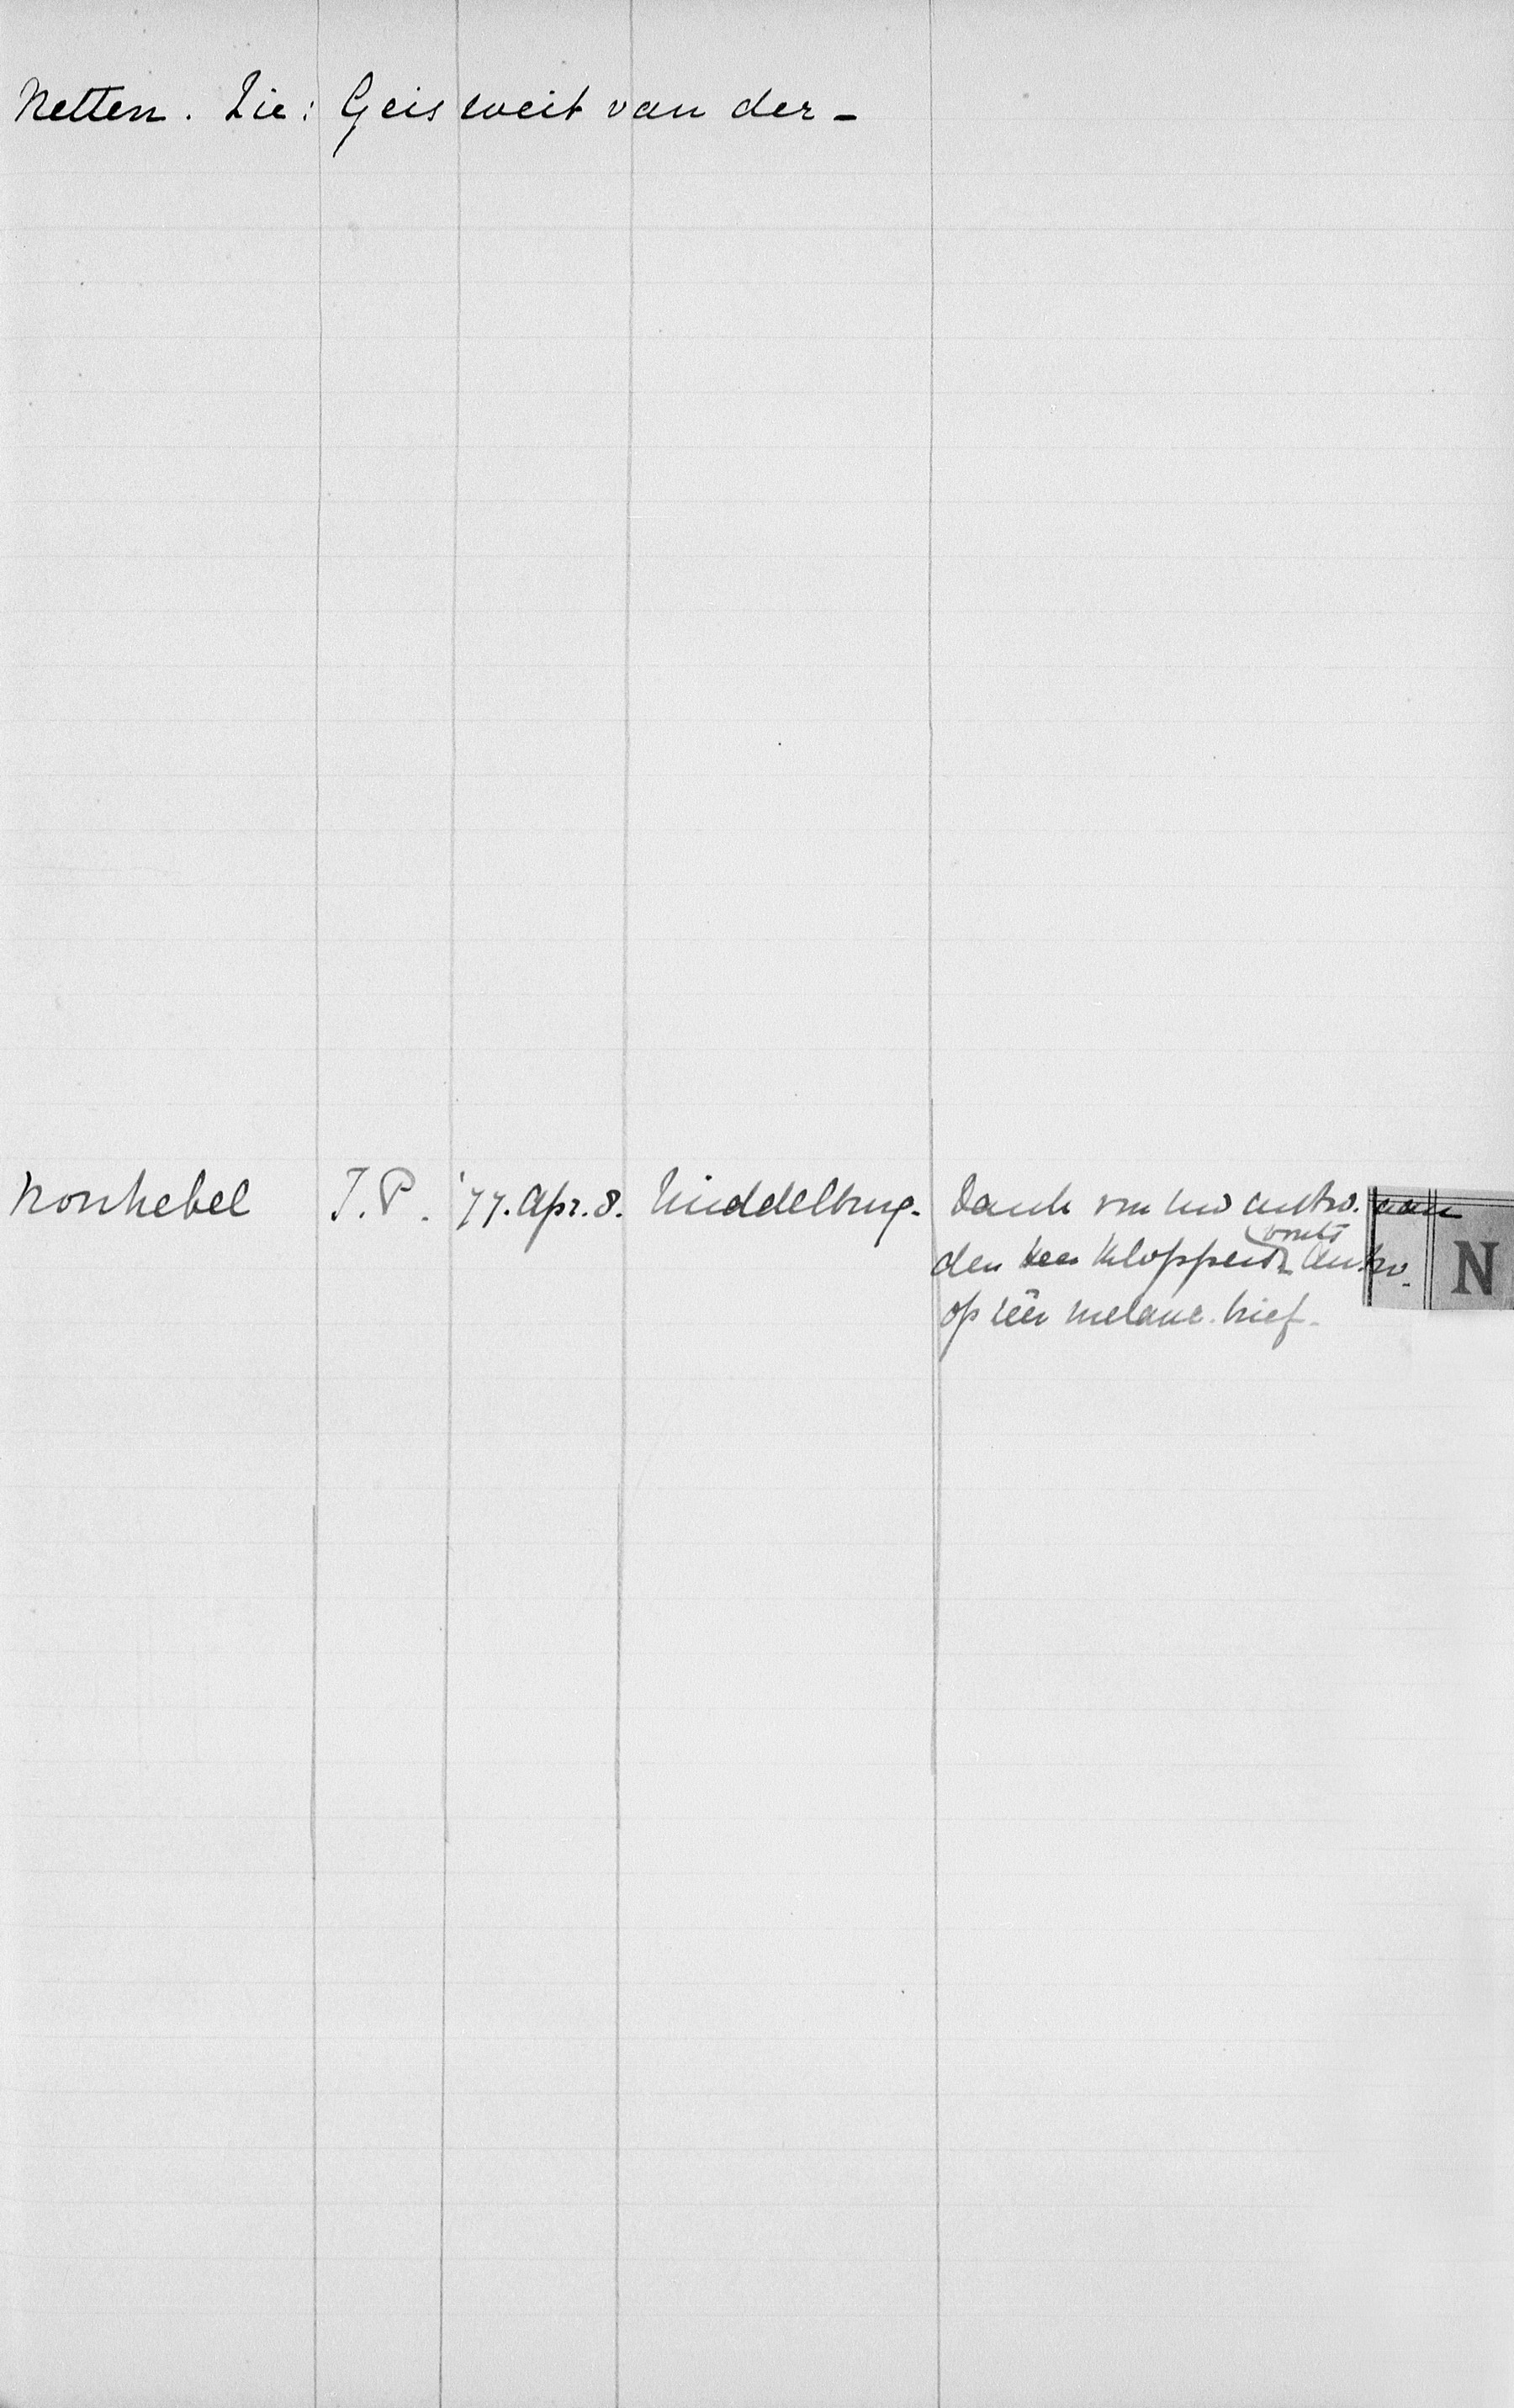 Netten. Zie: Geisweit van der -
Nonhebel J.P. '77. Apr. 8. Middelburg. Dank vm uw antw. aan
vouts
den heer Kloppers. Antw.
op zijn melanc. brief.
N